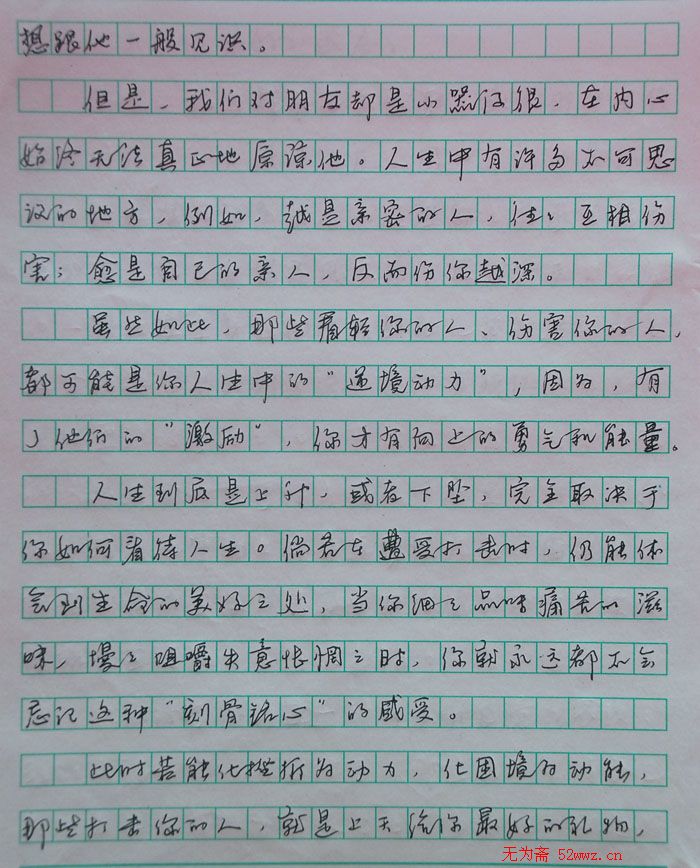 想跟他一般见识。
但是，我们对朋友却是小器得很，在内心
始终无法真正地原谅他。人生中有许多不可思
议的地方，例如，越是亲密的人，往々互相伤
害；愈是自己的亲人，反而伤你越深。
虽然如此，那些看轻你的人、伤害你的人，
都可能是你人生中的“逆境动力”，因为，有
了他们的“激励”，你才有向上的勇气和能量。
人生到底是上升，或者下坠，完全取决于
你如何看待人生。倘若在遭受打击时，仍能体
会到生命的美好之处，当你细々品味痛苦的滋
味，慢々咀嚼失意惆怅之时，你就永远都不会
忘记这种“刻骨铭心”的感受。
此时若能化挫折为动力，化困境为动能，
那些打击你的人，就是上天给你最好的礼物，
无为斋 52wwz.cn